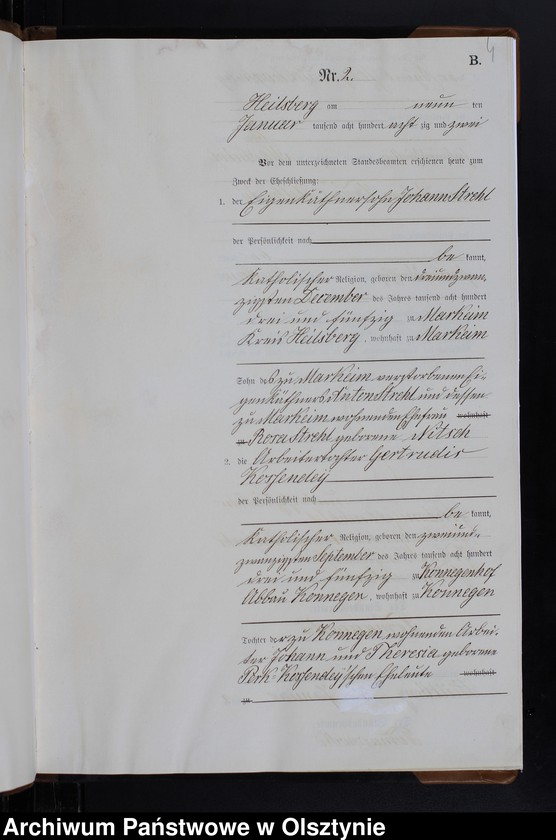 B. 4
Nr. 2.
Heilsberg am neun ten
Januar tausend acht hundert acht zig und zwei
Vor dem unterzeichneten Standesbeamten erschienen heute zum
Zweck der Eheschließung:
1. der Eigenkäthnersohn Johann Strehl
der Persönlichkeit nach
be kannt,
katholischer Religion, geboren den dreiundzwan-
zigsten December des Jahres tausend acht hundert
drei und fünfzig zu Markeim
Kreis Heilsberg, wohnhaft zu Markeim
Sohn des zu Markeim verstorbenen Ei-
genkäthners Anton Strehl und dessen
zu Markeim wohnenden Ehefrau wohnhaft
zu Rosa Strehl geborene Nitsch
2. die Arbeitertochter Gertrudis
Kossendey
der Persönlichkeit nach
be kannt,
katholischer Religion, geboren den zweiund-
zwanzigsten September des Jahres tausend acht hundert
drei und fünfzig zu Konnegenhof
Abbau Konnegen, wohnhaft zu Konnegen
Tochter der zu Konnegen wohnenden Arbei-
ter Johann und Theresia geborene
Perk-Kossendey'schen Eheleute wohnhaft
zu
Archiwum Państwowe w Olsztynie